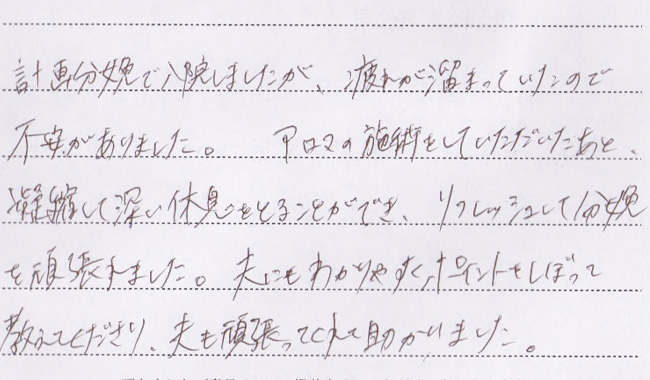 計画分娩で入院しましたが、疲れが溜まっていたので
不安がありました。 アロマの施術をしていただいたあと、
凝縮して深い休息をとることができ、リフレッシュして分娩
を頑張れました。夫にもわかりやすく、ポイントをしぼって
教えてくださり、夫も頑張ってくれて助かりました。